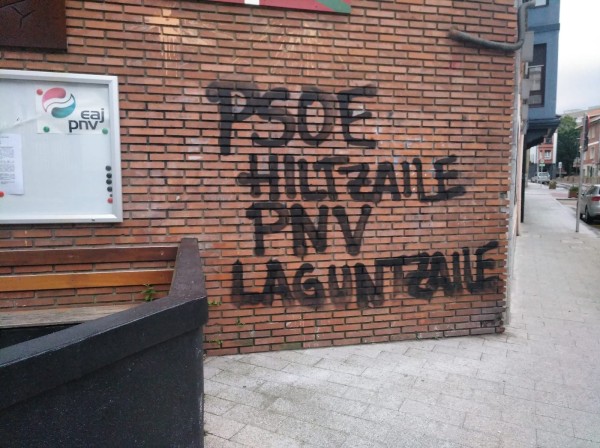 eaj
pnv
PSOE
HILTZAILE
PNV
LAGUNTZAILE